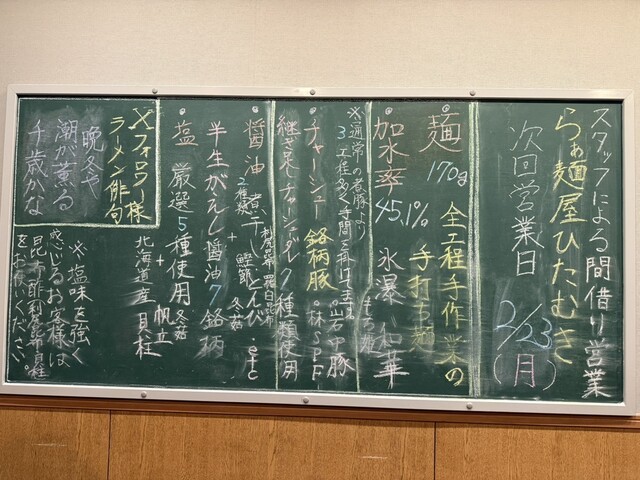 スタッフによる間借り営業
らぁ麺屋ひたむき
次回営業日 2/23(月)
麺 170g 全工程手作業の
手打ち麺
加水率 45.1% 氷瀑 和華
もち姫
※通常の煮豚より
3工程多く時間を掛けてます
・チャーシュー 銘柄豚 ・岩中豚
・林SPF
継ぎ足しチャーシューダレ7種類使用
・醤油 煮干し 鰹節 etc
利尻昆布 羅臼昆布
2種類 + 冬菇
半生がえし 醤油7銘柄
・塩 厳選5種使用 冬菇
+ 帆立
北海道産 貝柱
Xフォロワー様
ラーメン俳句
晩冬や
潮が薫る
千歳かな
※塩味を強く
感じるお客様は
昆布酢 利尻昆布貝柱
をお使いください。